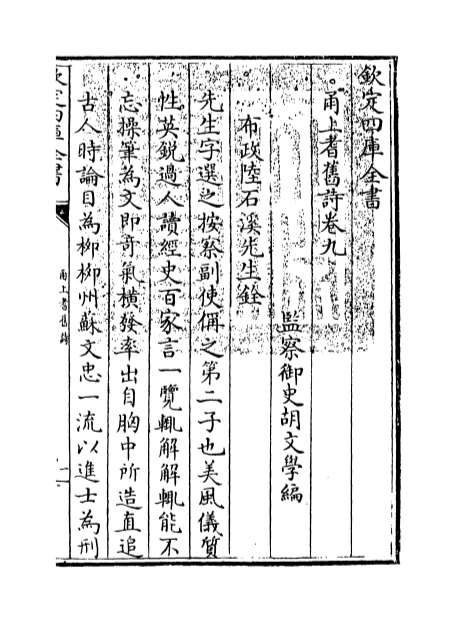 欽定四庫全書
甬上耆舊詩卷九
監察御史胡文學編
布政陸石溪先生銓
先生字選之按察副使偁之第二子也美風儀質
性英銳過人讀經史百家言一覽輒解解輒能不
忘操筆為文即奇氣橫發率出自胸中所造直追
古人時論目為柳柳州蘇文忠一流以進士為刑
欽定四庫全書
甬上耆舊詩
一